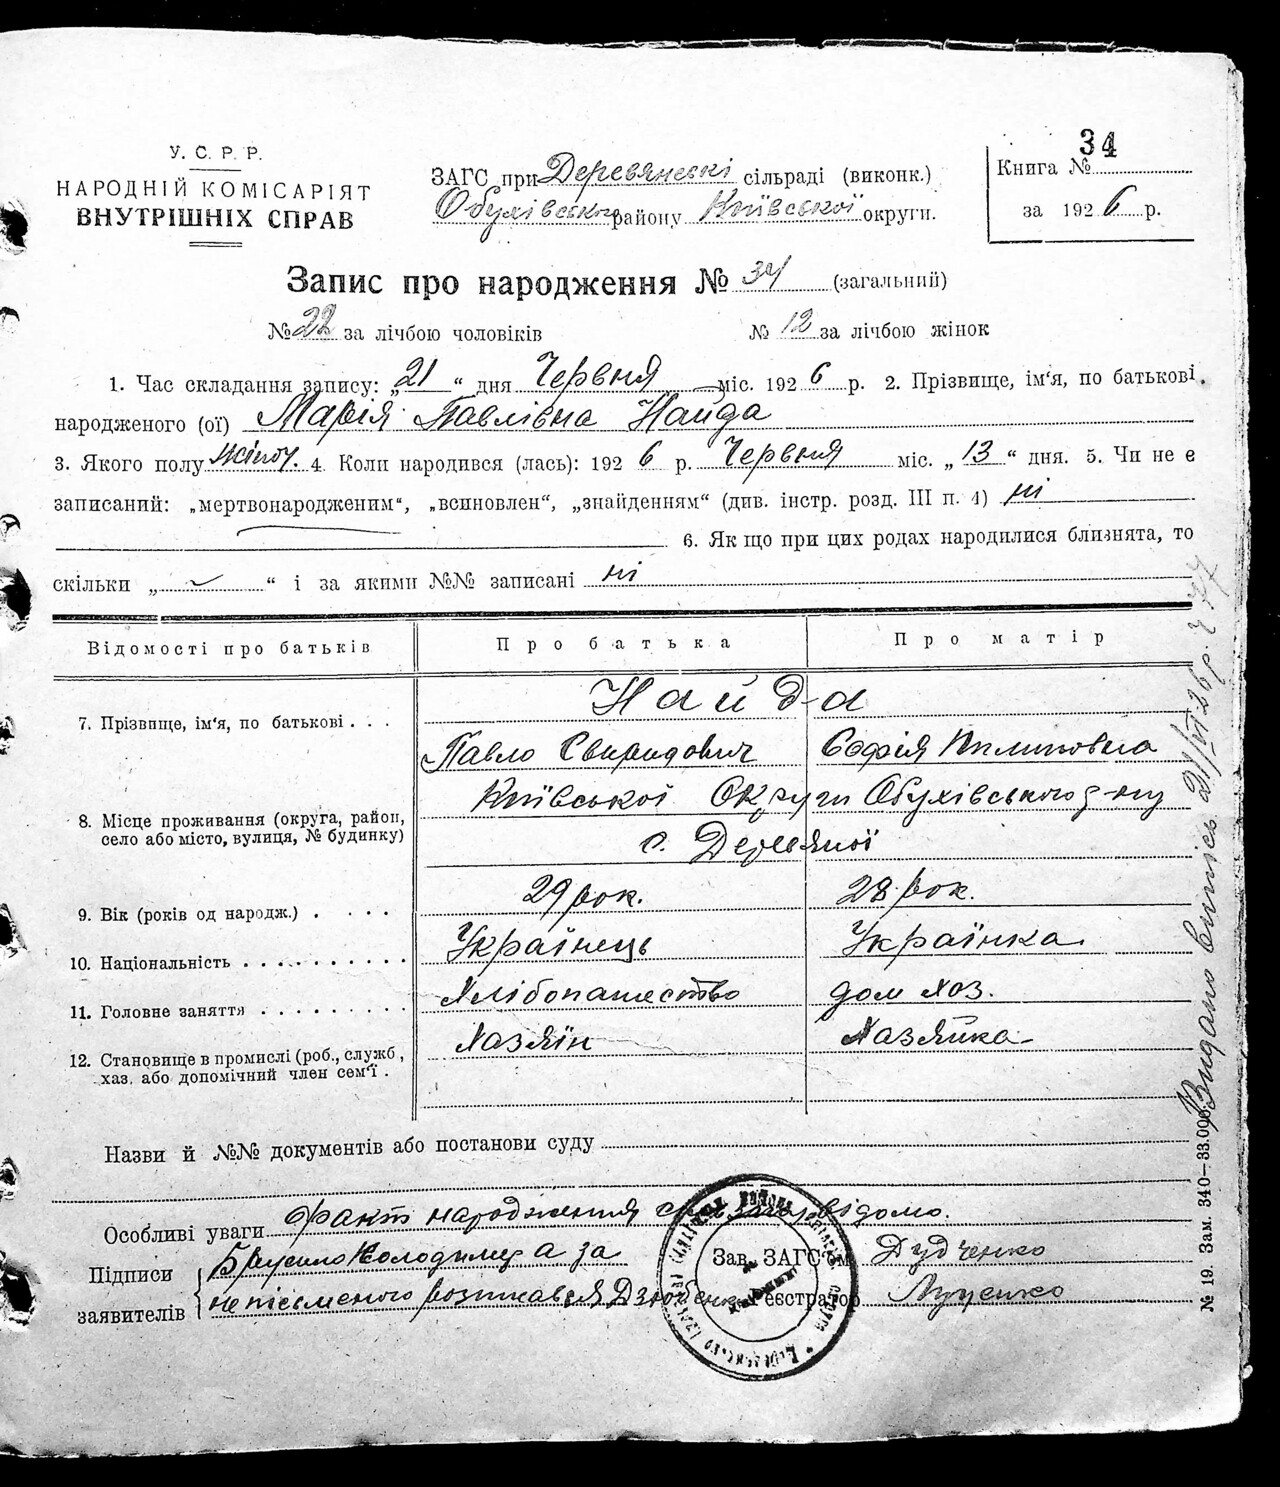 34
У. С. Р. Р.
НАРОДНІЙ КОМІСАРІЯТ
ВНУТРІШНІХ СПРАВ
ЗАГС при Деревянскі сільраді (виконк.)
Обухівського району Київської округи.
Книга №
за 1926 р.
Запис про народження № 34 (загальний)
№ 22 за лічбою чоловіків № 12 за лічбою жінок
1. Час складання запису: „21“ дня Червня міс. 1926 р. 2. Прізвище, ім‘я, по батькові
народженого (ої) Марія Павлівна Найда
3. Якого полу жіноч. 4. Коли народився (лась): 1926 р. Червня міс. „13“ дня. 5. Чи не є
записаний: „мертвонародженим“, „всиновлен“, „знайденням“ (див. інстр. розд. III п. 4) ні
6. Як що при цих родах народилися близнята, то
скільки „ “ і за якими №№ записані ні
Відомості про батьків Про батька Про матір
7. Прізвище, ім‘я, по батькові . . . Найда
Павло Свиридович Софія Пилиповна
8. Місце проживання (округа, район, село або місто, вулиця, № будинку) Київської Округи Обухівського р-ну
с. Деревяної
9. Вік (років од народж.) . . . . 29 рок. 28 рок.
10. Національність . . . . . . . . . . Українець Українка
11. Головне заняття . . . . . . . . . Хлібопашество дом хоз.
12. Становище в промислі (роб., служб, хаз. або допомічний член сем‘ї . Хазяїн Хазяйка
Назви й №№ документів або постанови суду
Особливі уваги Факт народження відомо.
Підписи заявителів за
неписьменого розписався Дзюбенко
Зав. ЗАГС‘ом Дудченко
Реєстратор Луценко
Видано Випись 21/VI 26 р.
№ 19. Зам. 340—33.000.